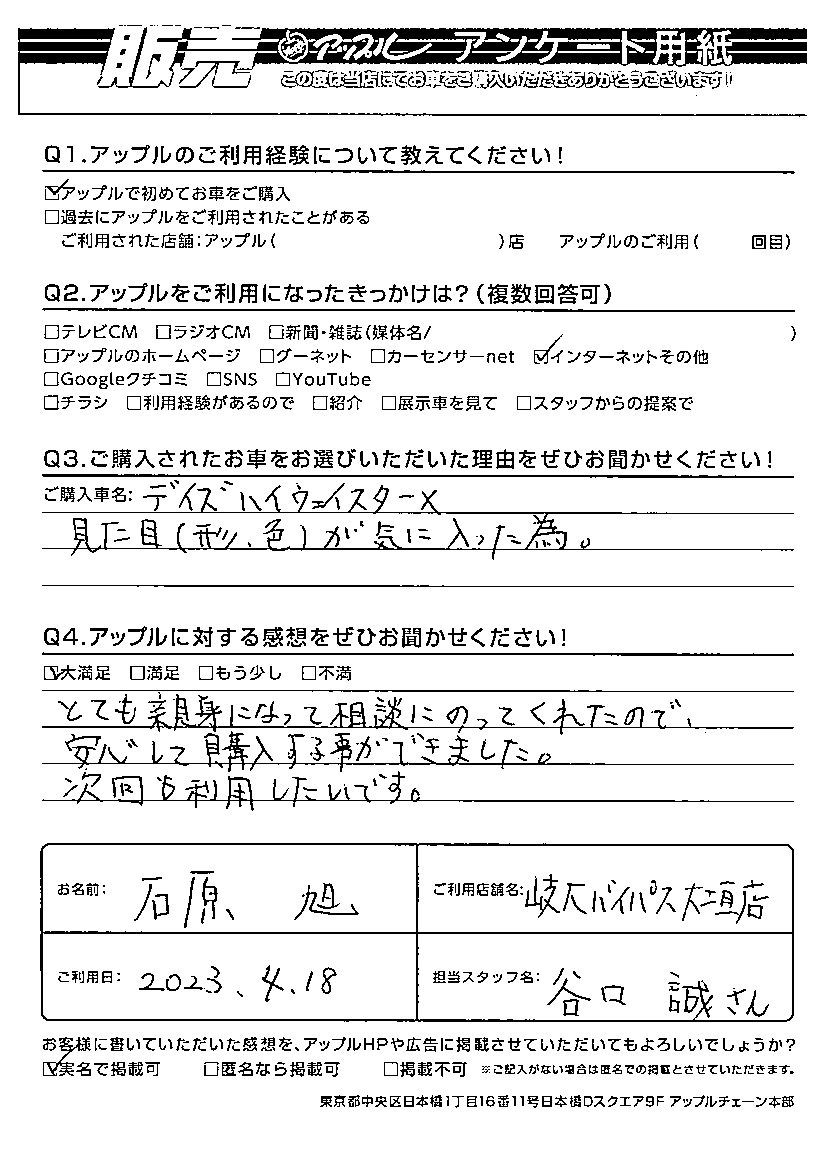 販売 アップル アンケート用紙
この度は当店にてお車をご購入いただきありがとうございます!
Q1.アップルのご利用経験について教えてください!
☑アップルで初めてお車をご購入
□過去にアップルをご利用されたことがある
ご利用された店舗:アップル( )店 アップルのご利用( 回目)
Q2.アップルをご利用になったきっかけは?(複数回答可)
□テレビCM □ラジオCM □新聞・雑誌(媒体名/ )
□アップルのホームページ □グーネット □カーセンサーnet ☑インターネットその他
□Googleクチコミ □SNS □YouTube
□チラシ □利用経験があるので □紹介 □展示車を見て □スタッフからの提案で
Q3.ご購入されたお車をお選びいただいた理由をぜひお聞かせください!
ご購入車名: デイズハイウェイスターX
見た目(形、色)が気に入った為。
Q4.アップルに対する感想をぜひお聞かせください!
☑大満足 □満足 □もう少し □不満
とても親身になって相談にのってくれたので、
安心して購入する事ができました。
次回も利用したいです。
お名前: 石原 旭
ご利用店舗名: 岐大バイパス大垣店
ご利用日: 2023.4.18
担当スタッフ名: 谷口 誠さん
お客様に書いていただいた感想を、アップルHPや広告に掲載させていただいてもよろしいでしょうか?
☑実名で掲載可 □匿名なら掲載可 □掲載不可 ※ご記入がない場合は匿名での掲載とさせていただきます。
東京都中央区日本橋1丁目16番11号日本橋Dスクエア9F アップルチェーン本部